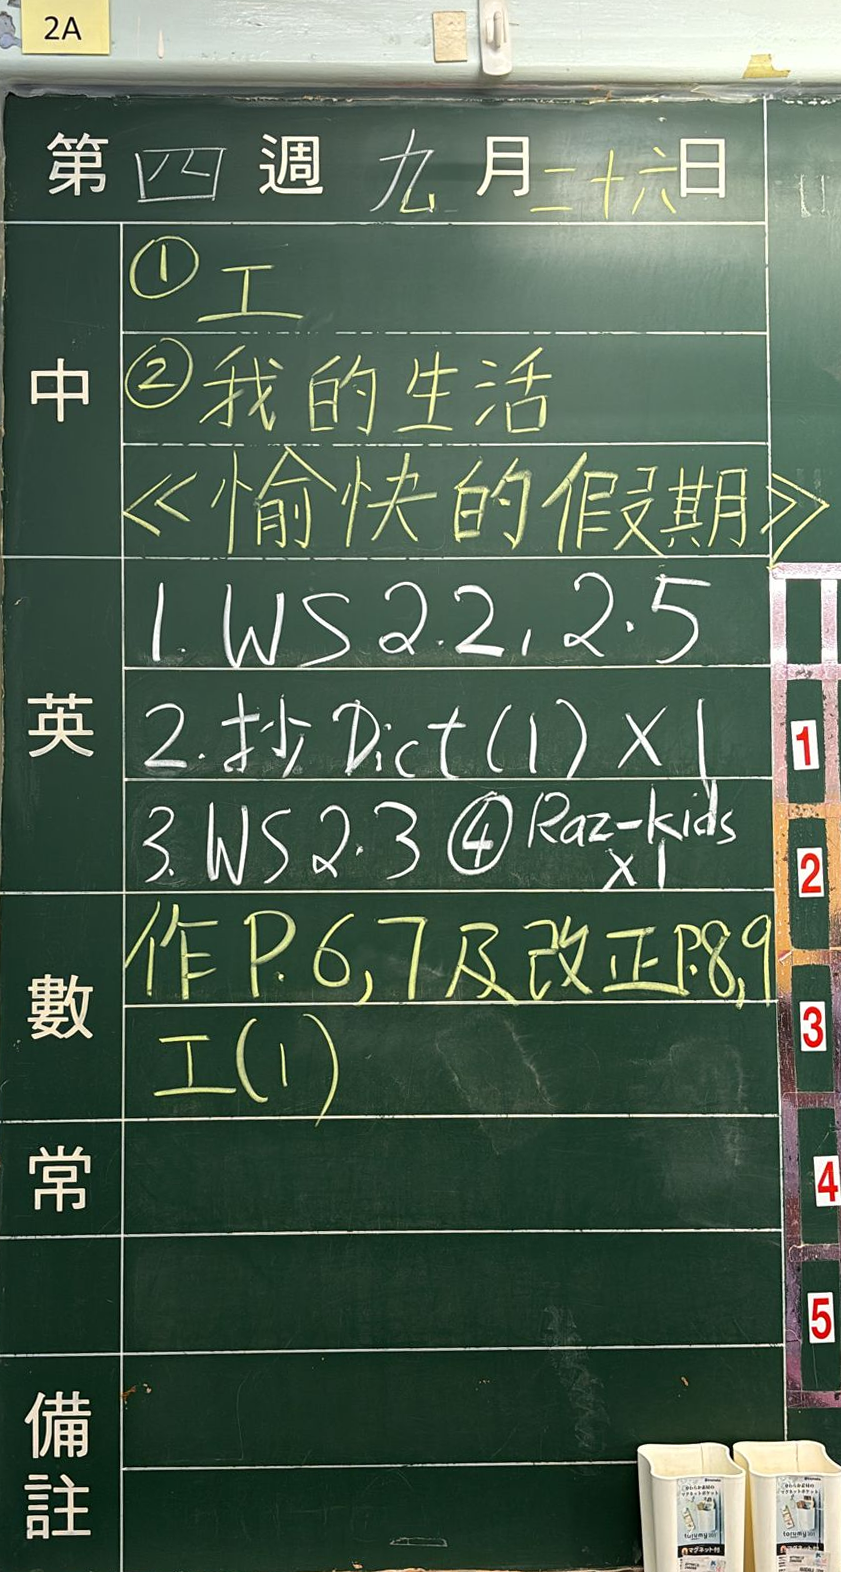 2A
第四週九月二十六日
中
① 工
② 我的生活
《愉快的假期》
英
1. WS 2.2, 2.5
2. 抄 Dict (1) X 1
3. WS 2.3 ④ Raz-kids X1
數
作 P. 6, 7 及改正 P.8, 9
工(1)
常
備註
1
2
3
4
5
torumy
torumy